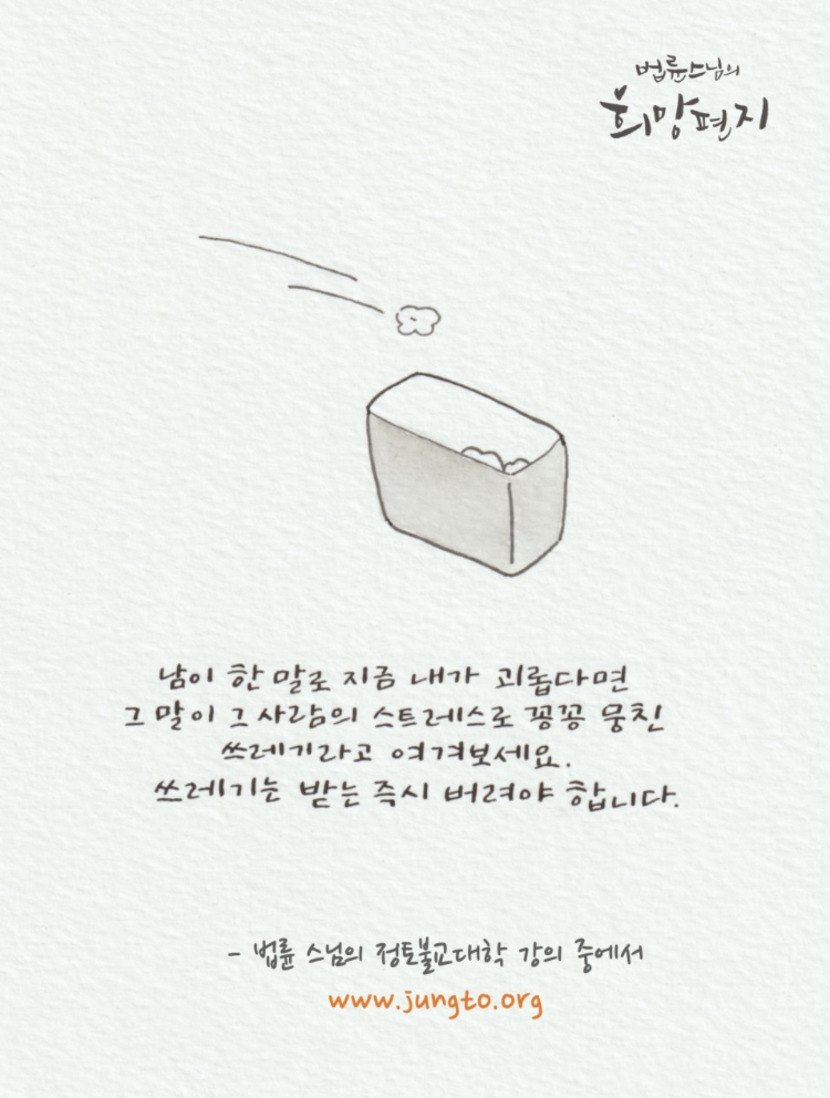 법륜스님의
희망편지
남이 한 말로 지금 내가 괴롭다면
그 말이 그 사람의 스트레스로 꽁꽁 뭉친
쓰레기라고 여겨보세요.
쓰레기는 받는 즉시 버려야 합니다.
- 법륜 스님의 정토불교대학 강의 중에서
www.jungto.org